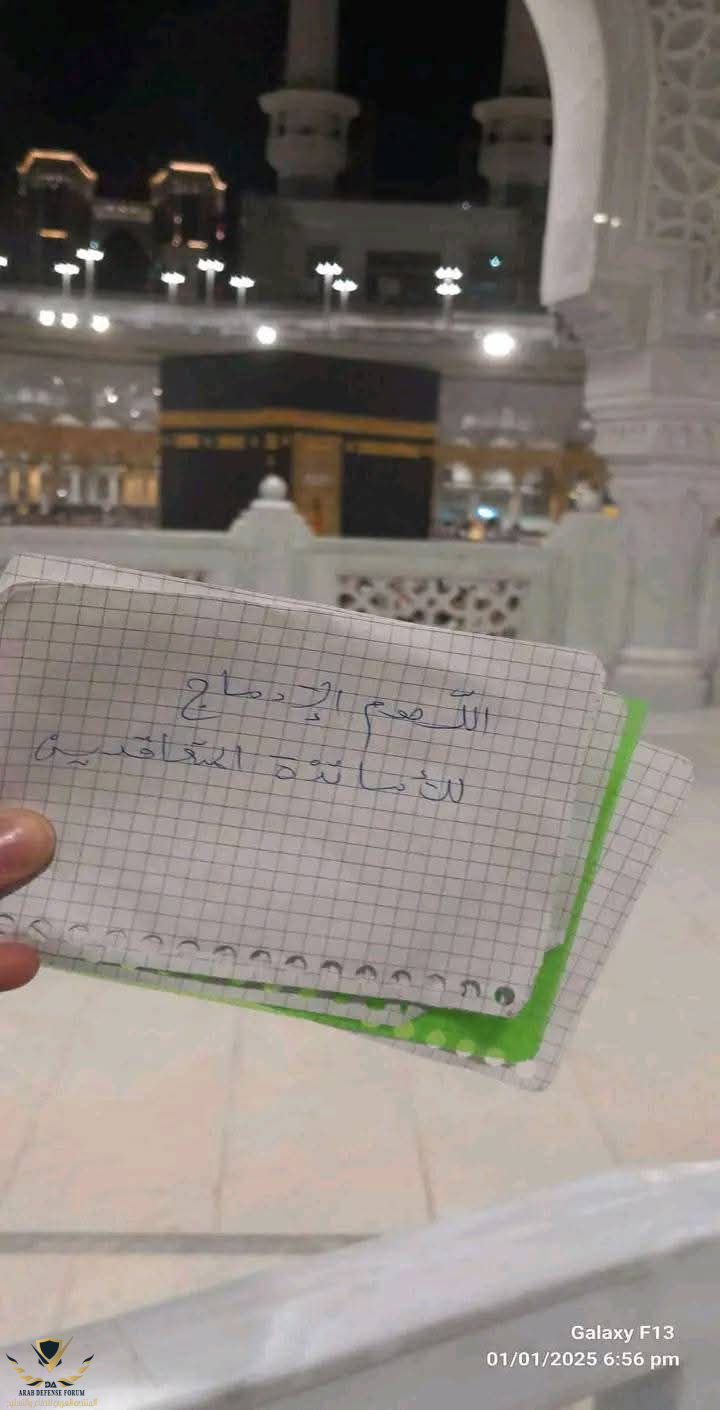 اللّهم الإدماج
للأساتذة المتعاقدين
Galaxy F13
01/01/2025 6:56 pm
DA
ARAB DEFENSE FORUM